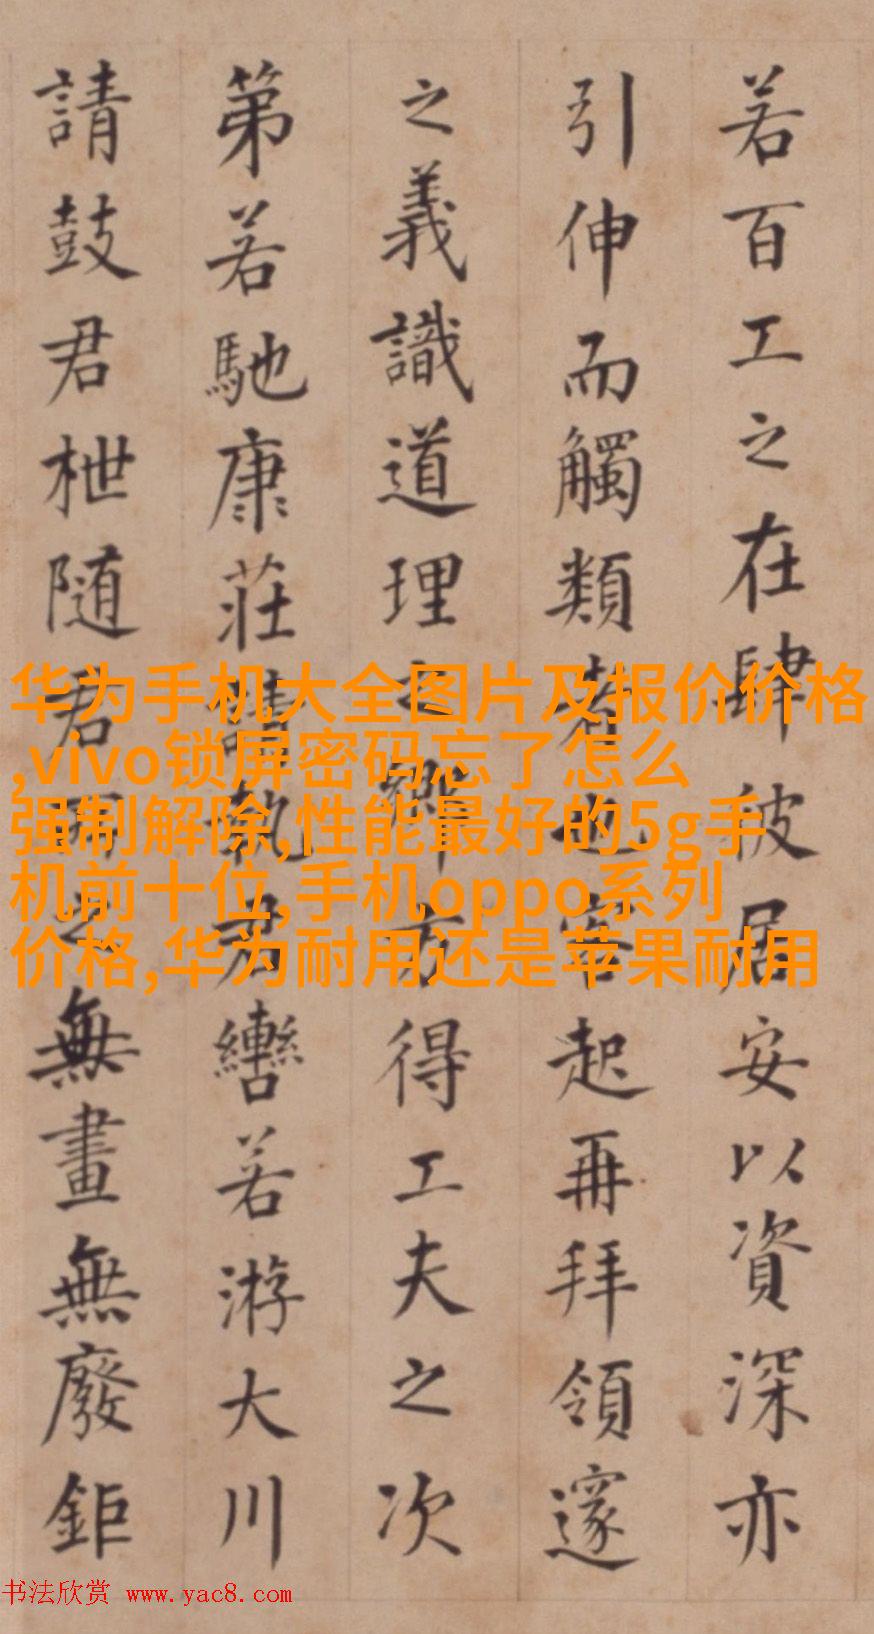 若百工之在肆彼居安以資深亦
引伸而觸類者也客起再拜領邃
之義識道理之鄉方得工夫之次
第若馳康莊請執君轡若游大川
請鼓君枻随君之無畫無廢鉅
华为手机大全图片及报价价格
,vivo锁屏密码忘了怎么
强制解除,性能最好的5g手
机前十位,手机oppo系列
价格,华为耐用还是苹果耐用
书法欣赏 www.yac8.com